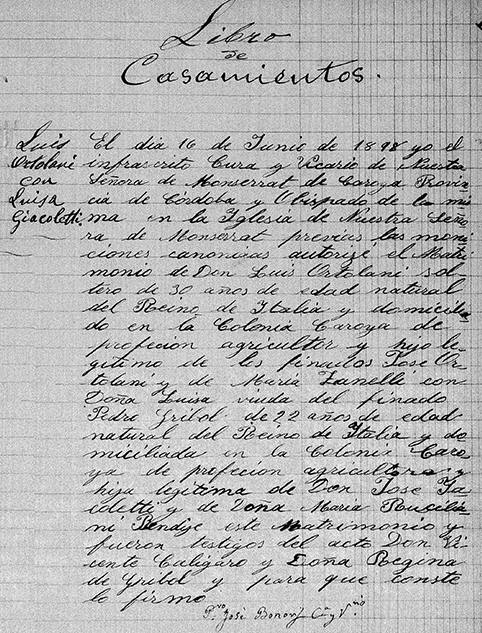 Libro
de
Casamientos.
Luis
Ortolani
con
Luisa
Giacoletti
El dia 16 de Junio de 1898 yo el
infrascrito Cura y Vicario de Nuestra
Señora de Monserrat de Caroya Provin
cia de Córdoba y Obispado de la mis
ma en la Iglesia de Nuestra Seño
ra de Monserrat previas las moni
ciones canonicas autorisé el Matri
monio de Don Luis Ortolani sol
tero de 30 años de edad natural
del Reino de Italia y domicilia
do en la Colonia Caroya de
profecion agricultor y hijo le
gitimo de los finados José Or
tolani y de Maria Zanelli con
Doña Luisa viuda del finado
Pedro Gribol de 22 años de edad
natural del Reino de Italia y do
miciliada en la Colonia Caro
ya de profecion agricultora y
hija legitima de Don José Ja
coletti y de Dona Maria
ni Bendije este Matrimonio y
fueron testigos del acto Don Vi
cente Caligaro y Doña Regina
de Gribol y para que conste
lo firmo
Pbro José Bonoris